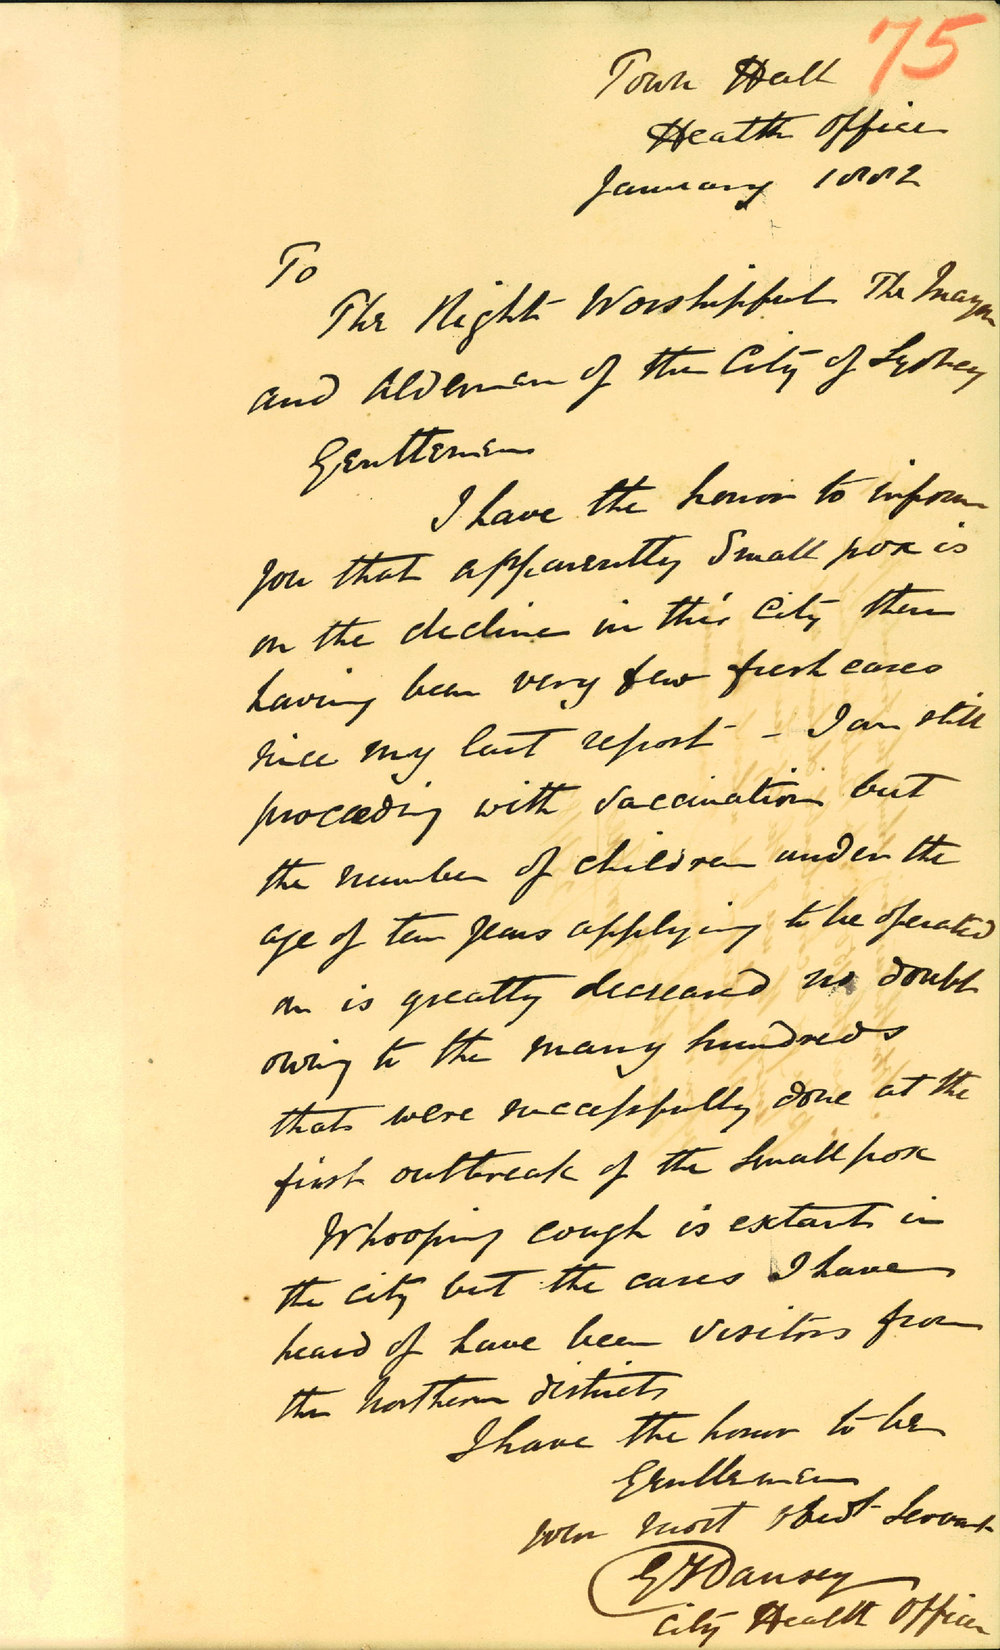 75
Town Hall
Health Office
January 1882
To
The Right Worshipful The Mayor
and Aldermen of the City of Sydney
Gentlemen
I have the honor to inform
you that apparently Small pox is
on the decline in this City there
having been very few fresh cases
since my last report – I am still
proceeding with vaccination but
the number of children under the
age of ten years applying to be operated
on is greatly decreased no doubt
owing to the many hundreds
that were successfully done at the
first outbreak of the Small pox
Whooping cough is extant in
the city but the cases I have
heard of have been visitors from
the Northern districts
I have the honor to be
Gentlemen
your most obedt Servant
G F Dansey
City Health Officer